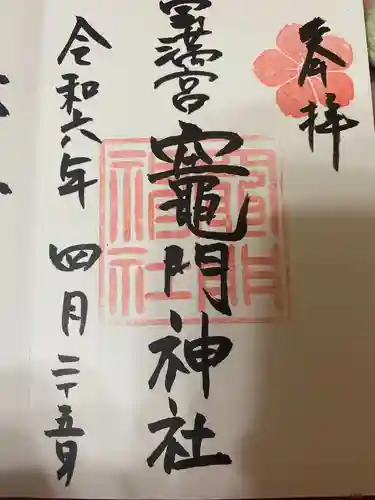 奉拝
宝満宮
竈門神社
竈門
神社
令和六年四月二十五日